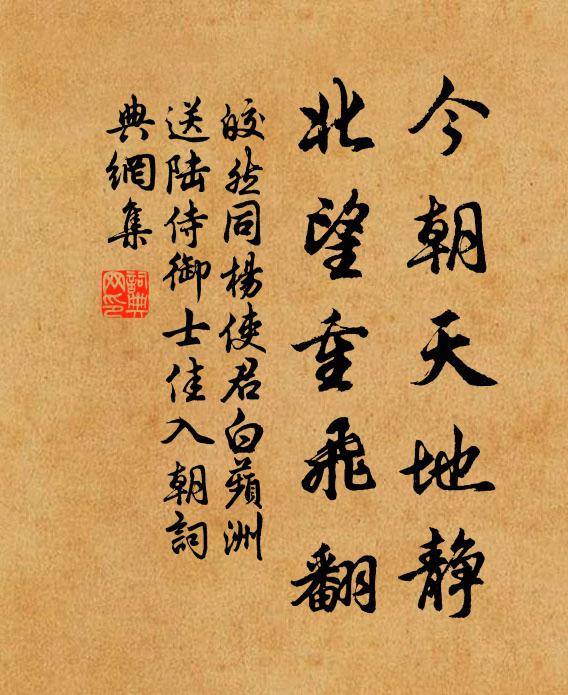 今朝天地静
北望重飛翻
皎然同楊使君白蘋洲
送陆侍御士佳入朝詞
典網集
詞典
网印